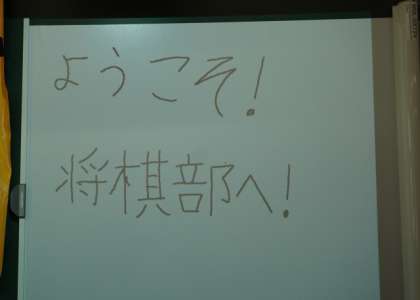 ようこそ!
将棋部へ!